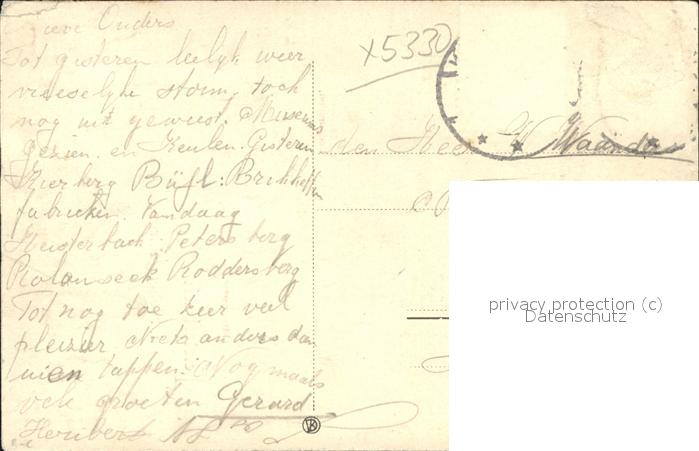 Lieve Ouders
Tot gisteren leelijk weer
vreeselijk storm, toch
nog uit geweest. Museums
gezien en Keulen. Gisteren
Kierberg Brühl: Brikhetten
fabrieken. Vandaag
Heisterbach Petersberg
Rolandseck Roddersberg
Tot nog toe zeer veel
plezier Niets anders dan
tappen. Nogmaals
vele groeten Gerard
x5330
den Heer Waanders
privacy protection (c)
Datenschutz